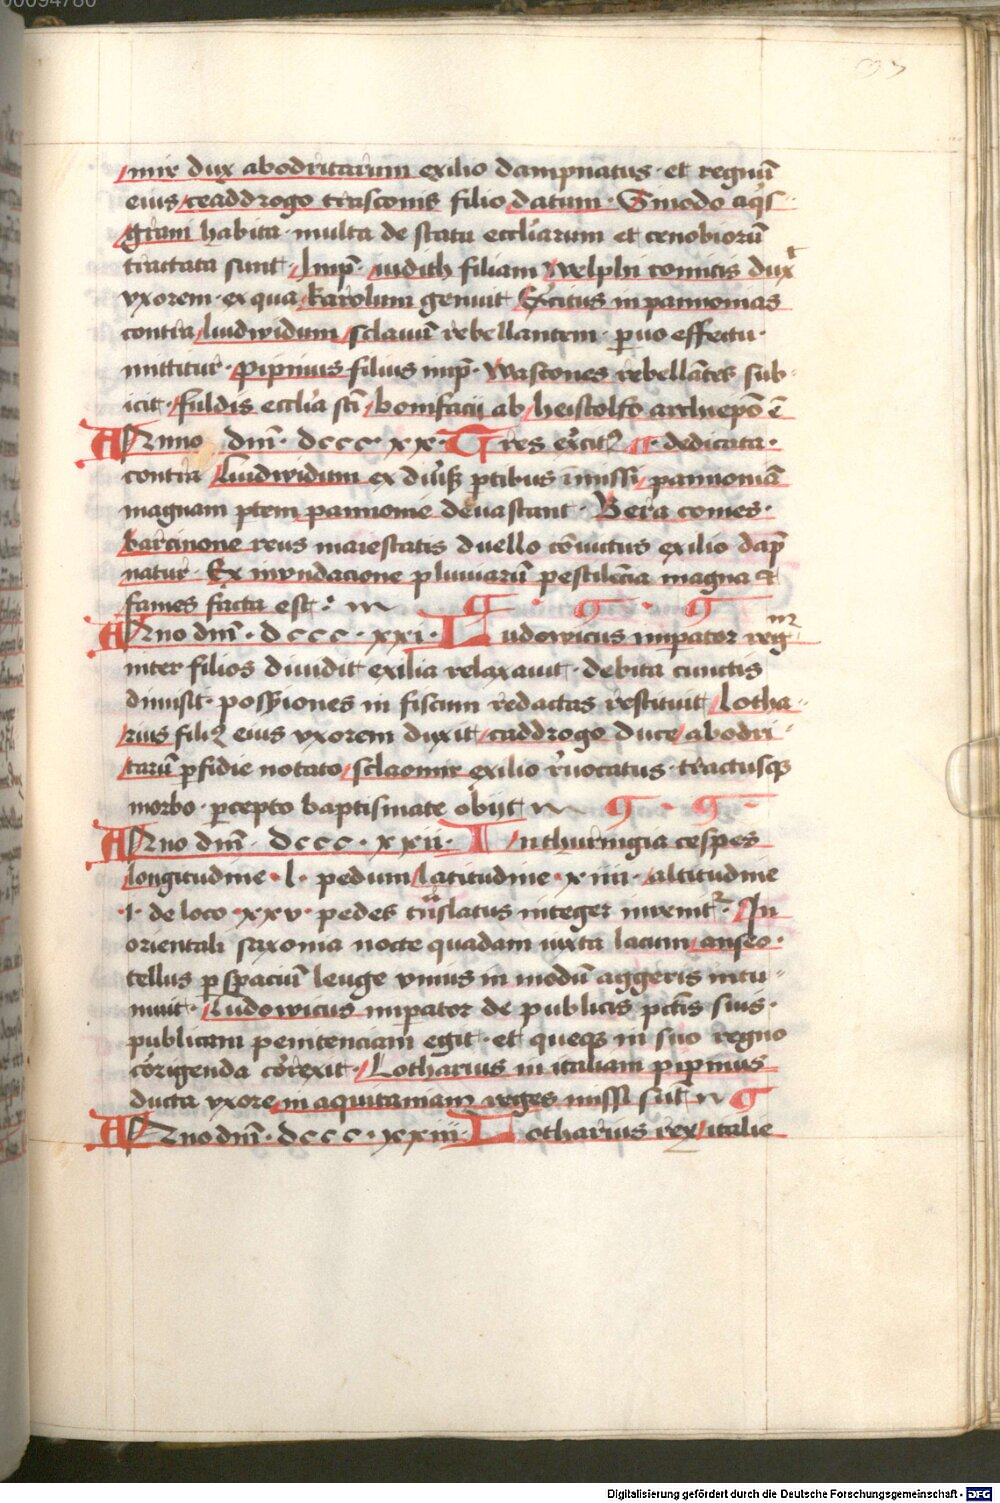 00094780
97
mir dux abodritarum exilio dampnatus · et regnū
eius ceaddrogo trasconis filio datum · Sinodo aq̄s
grani habita · multa de statu eccl̄iarum et cenobiorū
tractata sunt · Imp̄ · iudith filiam welphi comitis dux̄t
vxorem · ex qua karolum genuit Ex̄citus in pannonias
contra liudwidum sclauū rebellantem · ꝑuo effectu ·
mittitur · pipinus filius imp̄ · wascones rebellātes sub
icit · fuldis eccl̄ia sc̄i bonifacij ab heistolfo archiepō ē
Anno dn̄i · dccc · xx · Tres ex̄citꝰ ¶ · dedicata ·
contra Liudwidum ex diūsis ꝑtibus imissi pannoniā
magnam ꝑtem pannonie deuastant · Bera comes ·
barcinone reus maiestatis duello cōuictus exilio dap̄
natur · Ex invndacione pluuiarū pestilēcia magna et
fames facta est ·
Anno dn̄i · dccc · xxi · Ludowicus imperator regnū
inter filios diuidit exilia relaxauit · debita cunctis
dimisit · possiones in fiscum redactas restituit Lotha
rius filiꝰ eius vxorem duxit caddrogo duce abodri
tarū ꝑfidie notato sclaomir exilio r̄uocatus · tractusqꝫ
morbo · ꝑcepto baptismate obijt
Anno dn̄i · dccc · xxii · In thuringia cespes
longitudine · l · pedum Latitudine · xiiii · altitudine
·i· de loco · xxv · pedes trāslatus integer inuenitꝰ · In
orientali saxonia nocte quadam iuxta lacum anseo ·
tellus ꝑ spaciū leuge vnius in modū aggeris intu
muit · Ludowicus imperator de publicis pc̄tis suis ·
publicam penitenciam egit · et queqꝫ in suo regno
cōrigenda cōrexit · Lotharius in italiam pipinus
ducta vxore in aquitaniam reges missi sūt
Anno dn̄i · dccc · xxiii · Lotharius rex italie
Digitalisierung gefördert durch die Deutsche Forschungsgemeinschaft - DFG